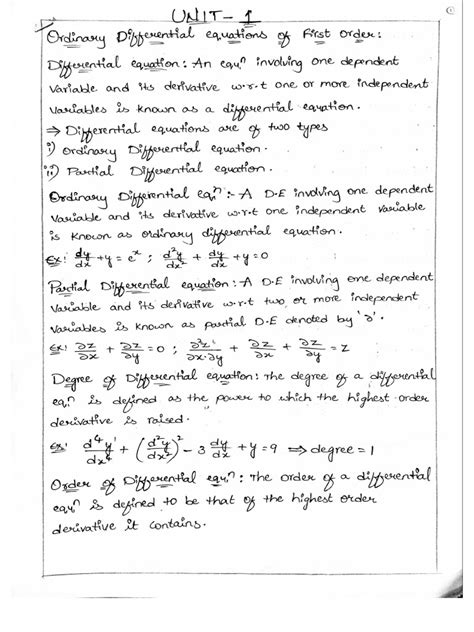 UNIT-1
①
Ordinary Differential equations of First Order:
Differential equation: An equⁿ involving one dependent
variable and its derivative w.r.t one or more independent
variables is known as a differential equation.
⇒ Differential equations are of two types
i) Ordinary Differential equation.
ii) Partial Differential equation.
Ordinary Differential eqⁿ:- A D.E involving one dependent
variable and its derivative w.r.t one independent variable
is known as ordinary differential equation.
Ex: dy/dx + y = eˣ ; d²y/dx² + dy/dx + y = 0
Partial Differential equation:- A D.E involving one dependent
variable and its derivative w.r.t two or more independent
variables is known as partial D.E denoted by '∂'.
Ex: ∂z/∂x + ∂z/∂y = 0 ; ∂²z/∂x.∂y + ∂z/∂x + ∂z/∂y = z
Degree of Differential equation: The degree of a differential
equⁿ is defined as the power to which the highest order
derivative is raised.
Ex: d⁴y/dx⁴ + (d²y/dx²)² - 3 dy/dx + y = 9 ⇒ degree = 1
Order of Differential equⁿ: The order of a differential
equⁿ is defined to be that of the highest order
derivative it contains.